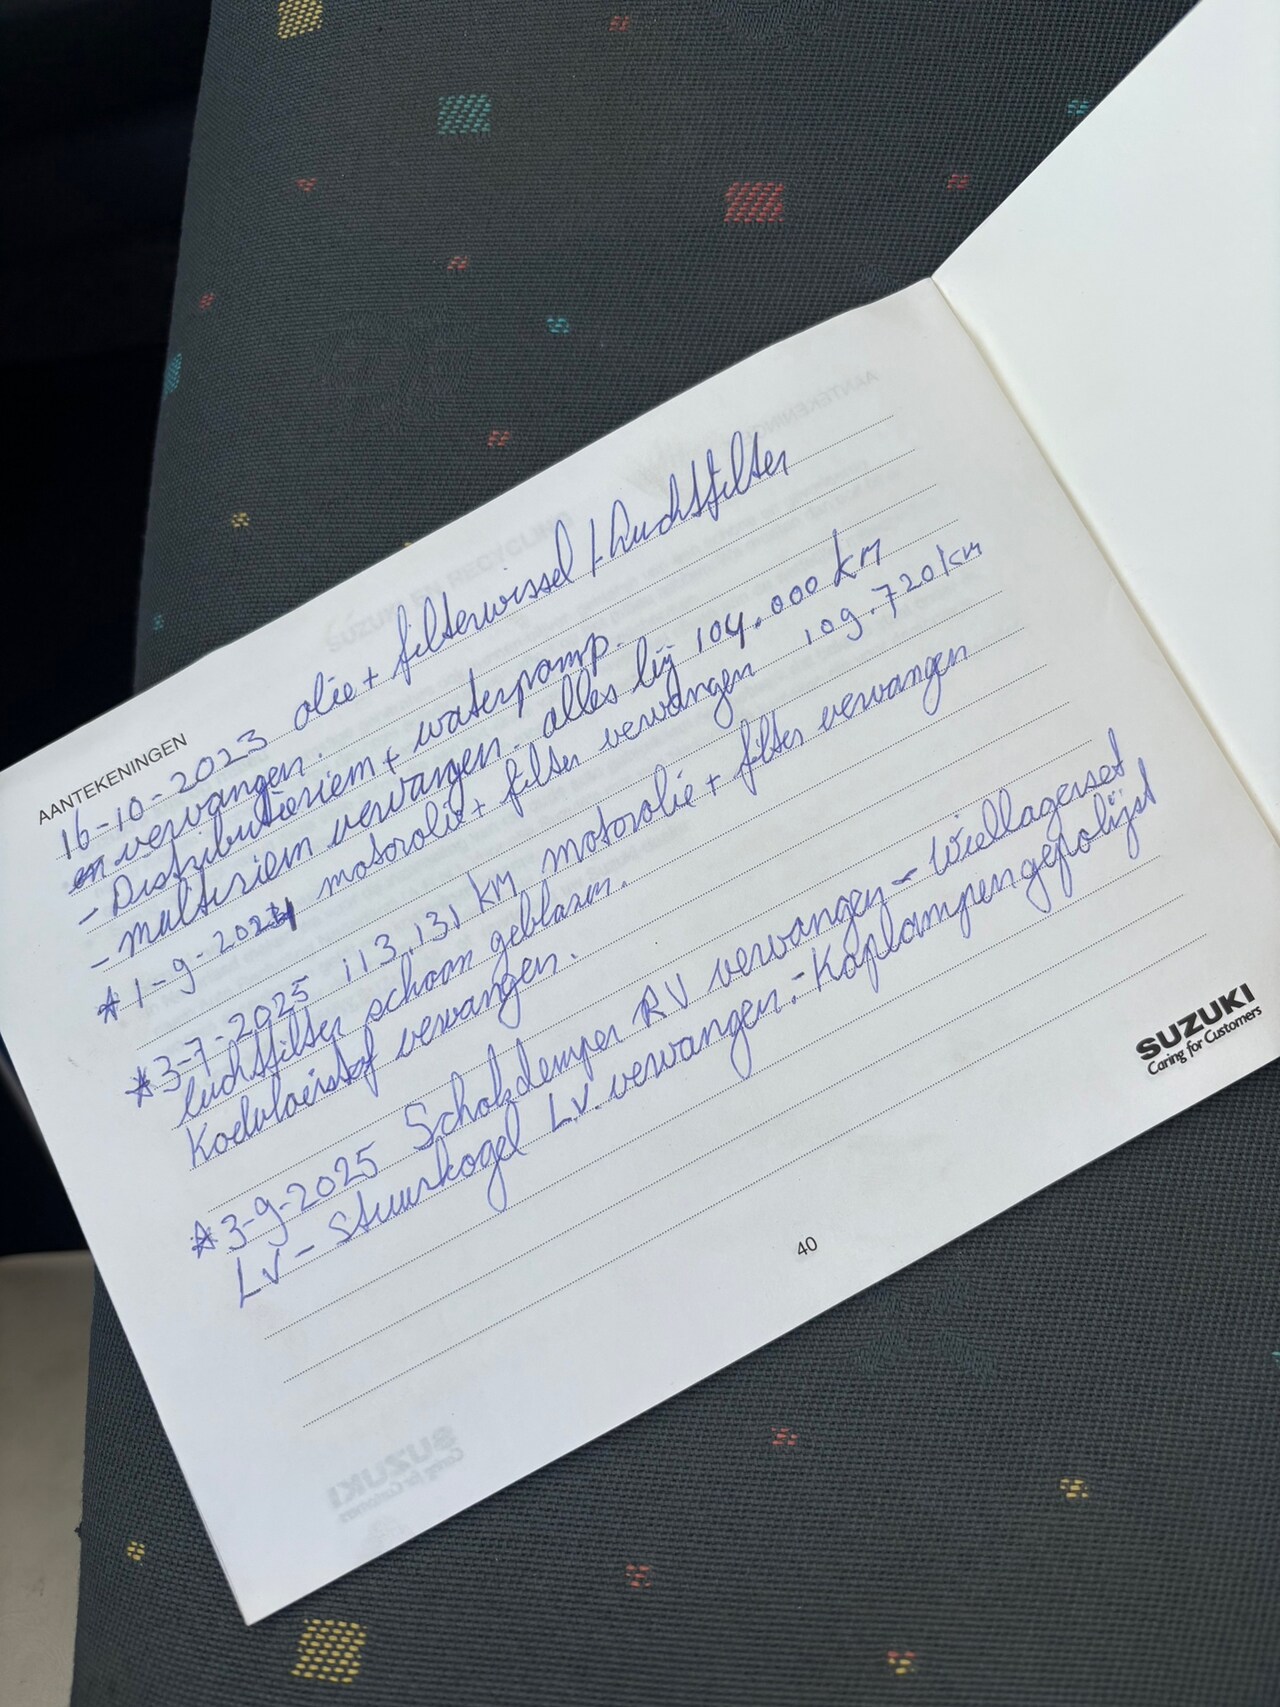 AANTEKENINGEN
16-10-2023 olie + filterwissel / Luchtfilter
en vervangen.
- Distributieriem + waterpomp.
- multiriem vervangen. alles bij 104.000 km
* 1-9-2024 motorolie + filter vervangen 109.720 km
* 3-7-2025 113.131 km motorolie + filter vervangen
luchtfilter schoon geblazen.
Koelvloeistof vervangen.
* 3-9-2025 Schokdemper RV vervangen - Wiellagerset
LV - stuurkogel LV. vervangen. - Koplampen gepolijst
SUZUKI
Caring for Customers
40